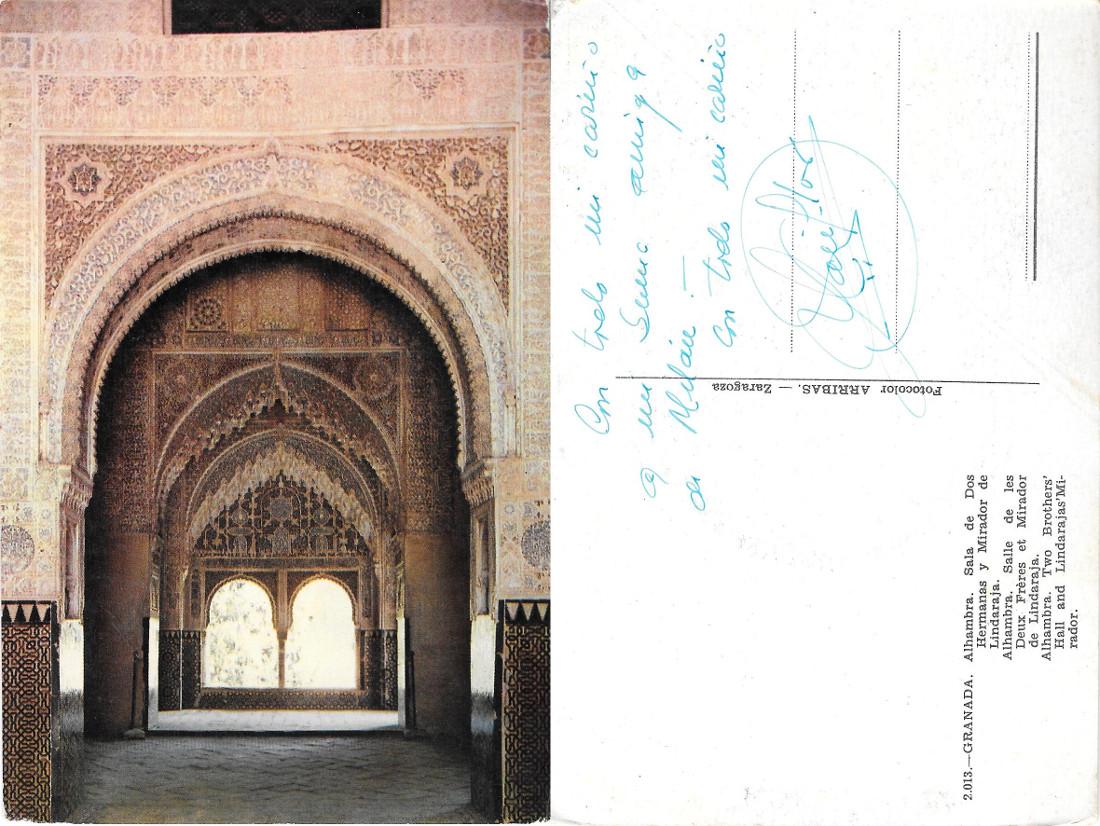 Con todo mi cariño
a mi buena amiga
de
Con todo mi cariño
Fotocolor ARRIBAS. — Zaragoza
2.013.—GRANADA. Alhambra. Sala de Dos
Hermanas y Mirador de
Lindaraja.
Alhambra, Salle de les
Deux Frères et Mirador
de Lindaraja.
Alhambra. Two Brothers'
Hall and Lindarajas'Mi-
rador.